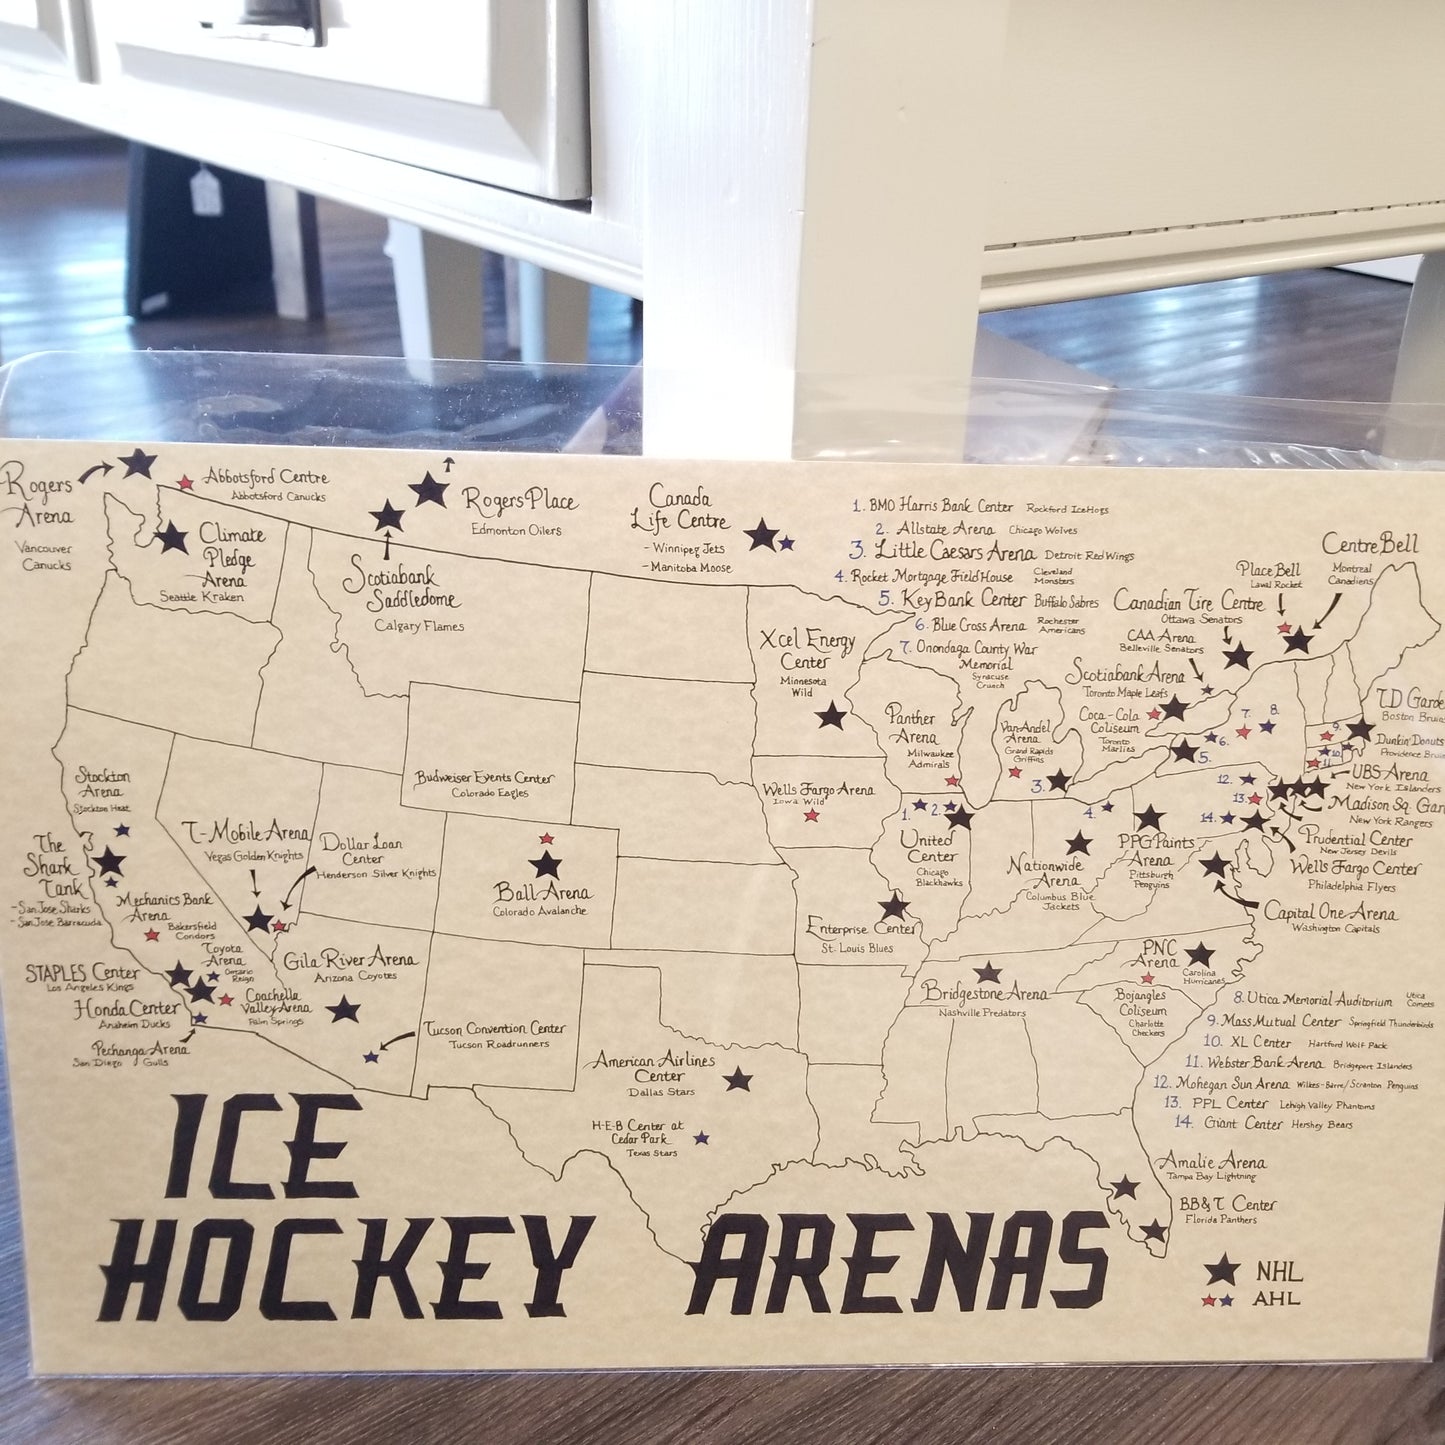 Rogers
Arena
Vancouver
Canucks
Abbotsford Centre
Abbotsford Canucks
Climate
Pledge
Arena
Seattle Kraken
Rogers Place
Edmonton Oilers
Scotiabank
Saddledome
Calgary Flames
Canada
Life Centre
- Winnipeg Jets
- Manitoba Moose
1. BMO Harris Bank Center Rockford IceHogs
2. Allstate Arena Chicago Wolves
3. Little Caesars Arena Detroit Red Wings
4. Rocket Mortgage FieldHouse Cleveland
Monsters
5. KeyBank Center Buffalo Sabres
6. Blue Cross Arena Rochester
Americans
7. Onondaga County War
Memorial
Syracuse
Crunch
Centre Bell
Montreal
Canadiens
Place Bell
Laval Rocket
Canadian Tire Centre
Ottawa Senators
CAA Arena
Belleville Senators
Scotiabank Arena
Toronto Maple Leafs
Coca-Cola
Coliseum
Toronto
Marlies
Xcel Energy
Center
Minnesota
Wild
Panther
Arena
Milwaukee
Admirals
Van Andel
Arena
Grand Rapids
Griffins
3.
5.
6.
7.
8.
9.
10.
11.
12.
13.
14.
TD Garde
Boston Bruin
Dunkin' Donuts
Providence Bruin
UBS Arena
New York Islanders
Madison Sq. Gar
New York Rangers
Prudential Center
New Jersey Devils
Wells Fargo Center
Philadelphia Flyers
Capital One Arena
Washington Capitals
Stockton
Arena
Stockton Heat
The
Shark
Tank
- San Jose Sharks
- San Jose Barracuda
T-Mobile Arena
Vegas Golden Knights
Dollar Loan
Center
Henderson Silver Knights
Budweiser Events Center
Colorado Eagles
Ball Arena
Colorado Avalanche
Wells Fargo Arena
Iowa Wild
1.
2.
4.
United
Center
Chicago
Blackhawks
Nationwide
Arena
Columbus Blue
Jackets
PPG Paints
Arena
Pittsburgh
Penguins
Enterprise Center
St. Louis Blues
Mechanics Bank
Arena
Bakersfield
Condors
Toyota
Arena
Ontario
Reign
STAPLES Center
Los Angeles Kings
Honda Center
Anaheim Ducks
Pechanga Arena
San Diego Gulls
Coachella
Valley Arena
Palm Springs
Gila River Arena
Arizona Coyotes
Tucson Convention Center
Tucson Roadrunners
American Airlines
Center
Dallas Stars
H-E-B Center at
Cedar Park
Texas Stars
Bridgestone Arena
Nashville Predators
PNC
Arena
Carolina
Hurricanes
Bojangles
Coliseum
Charlotte
Checkers
8. Utica Memorial Auditorium Utica
Comets
9. MassMutual Center Springfield Thunderbirds
10. XL Center Hartford Wolf Pack
11. Webster Bank Arena Bridgeport Islanders
12. Mohegan Sun Arena Wilkes-Barre/Scranton Penguins
13. PPL Center Lehigh Valley Phantoms
14. Giant Center Hershey Bears
Amalie Arena
Tampa Bay Lightning
BB&T Center
Florida Panthers
ICE
HOCKEY ARENAS
NHL
AHL